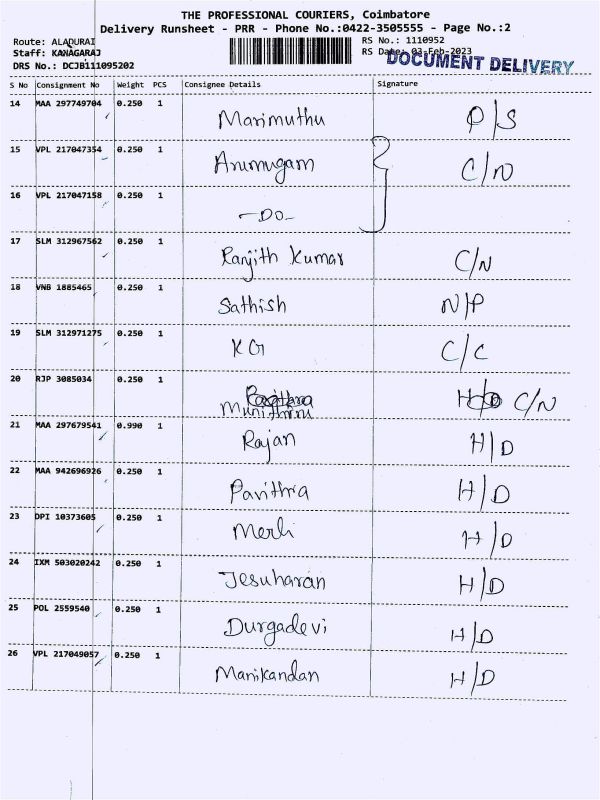 THE PROFESSIONAL COURIERS, Coimbatore
Delivery Runsheet - PRR - Phone No.:0422-3505555 - Page No.:2
Route: ALADURAI RS No.: 1110952
Staff: KANAGARAJ RS Date: 03-Feb-2023
DOCUMENT DELIVERY
DRS No.: DCJB111095202
S No Consignment No Weight PCS Consignee Details Signature
14 MAA 297749704 0.250 1 Marimuthu P/S
15 VPL 217047354 0.250 1 Arumugam C/N
16 VPL 217047158 0.250 1 -DO-
17 SLM 312967562 0.250 1 Ranjith Kumar C/N
18 VNB 1885465 0.250 1 Sathish N/P
19 SLM 312971275 0.250 1 KG C/C
20 RJP 3085034 0.250 1 C/N
21 MAA 297679541 0.990 1 Rajan H/D
22 MAA 942696926 0.250 1 Pavithra H/D
23 DPI 10373605 0.250 1 H/D
24 IXM 503020242 0.250 1 Jesuharan H/D
25 POL 2559540 0.250 1 Durgadevi H/D
26 VPL 217049057 0.250 1 Manikandan H/D